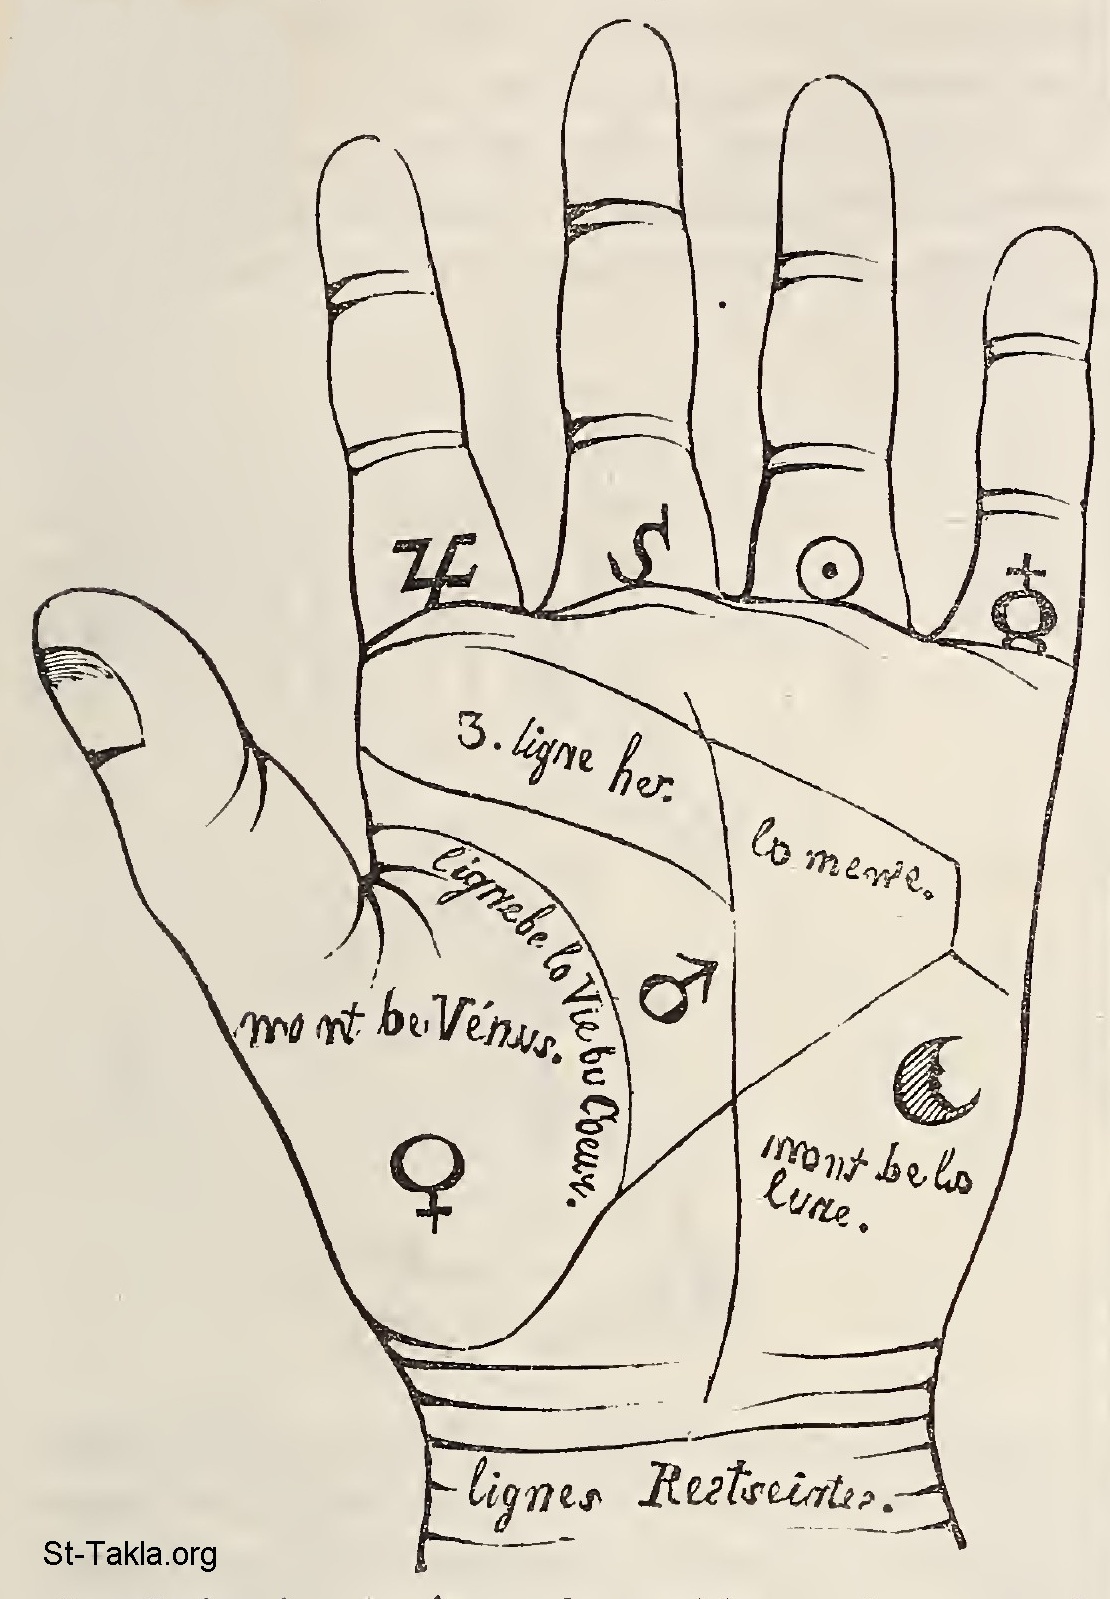 3. ligne her.
la mense.
ligne de la Vie du Coeur.
mont de Vénus.
mont de la
lune.
lignes Restseintes.
St-Takla.org